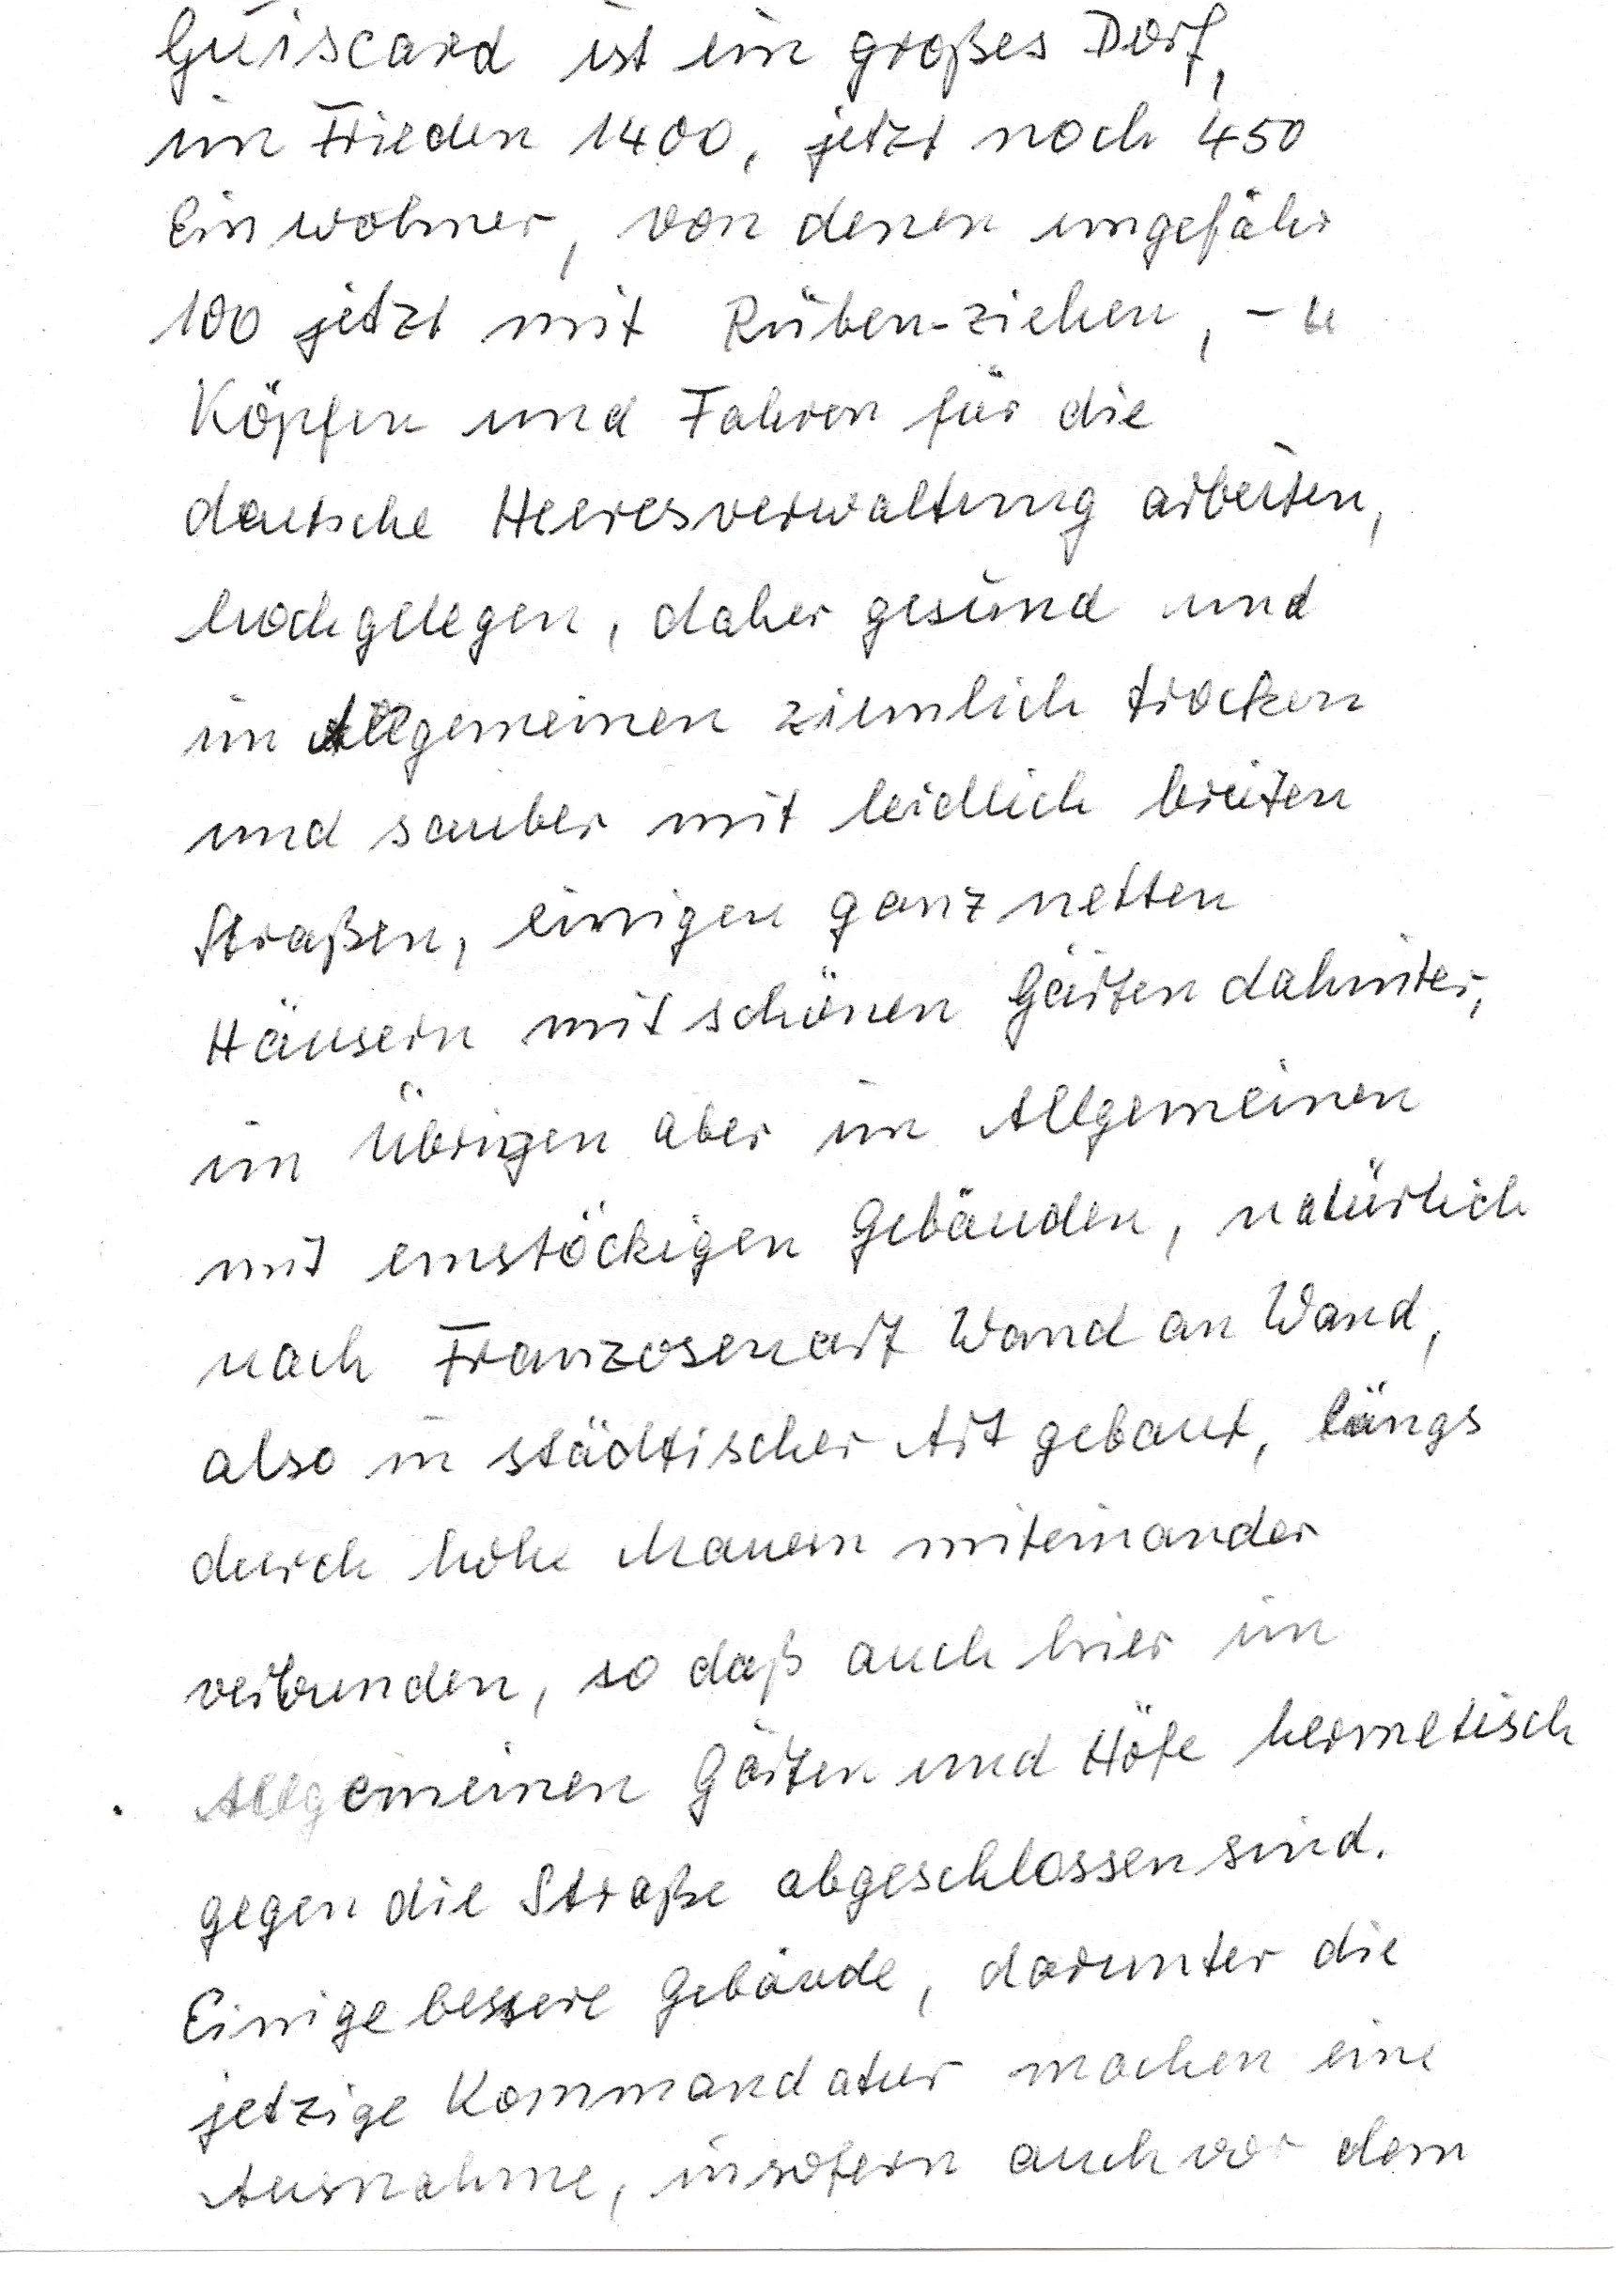 Guiscard ist ein großes Dorf,
im Frieden 1400, jetzt noch 450
Einwohner, von denen ungefähr
100 jetzt mit Rüben-ziehen, -
Köpfen und Fahren für die
deutsche Heeresverwaltung arbeiten,
hochgelegen, daher gesund und
im Allgemeinen ziemlich trocken
und sauber mit leidlich breiten
Straßen, einigen ganz netten
Häusern mit schönen Gärten dahinter,
im Übrigen aber im Allgemeinen
mit einstöckigen Gebäuden, natürlich
nach Franzosenart Wand an Wand,
also in städtischer Art gebaut, längs
durch hohe Mauern miteinander
verbunden, so daß auch hier im
Allgemeinen Gärten und Höfe hermetisch
gegen die Straße abgeschlossen sind.
Einige bessere Gebäude, darunter die
jetzige Kommandatur machen eine
Ausnahme, insofern auch vor dem